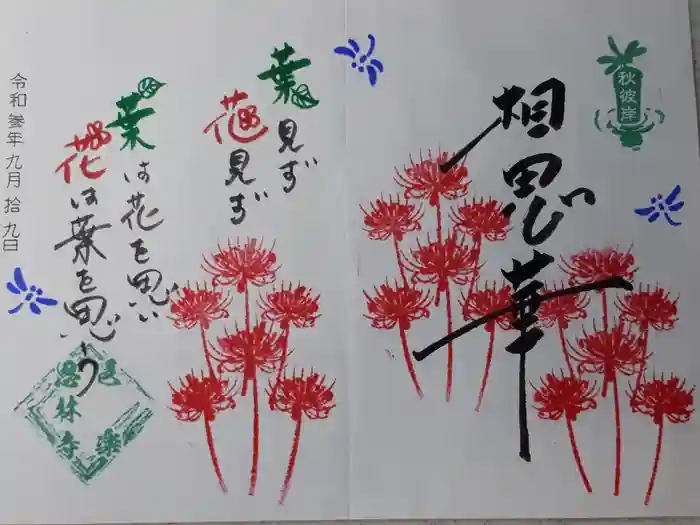 秋彼岸
相思華
葉見ず
花見ず
葉は花を思い
花は葉を思う
令和参年九月拾九日
邑楽
恩林寺